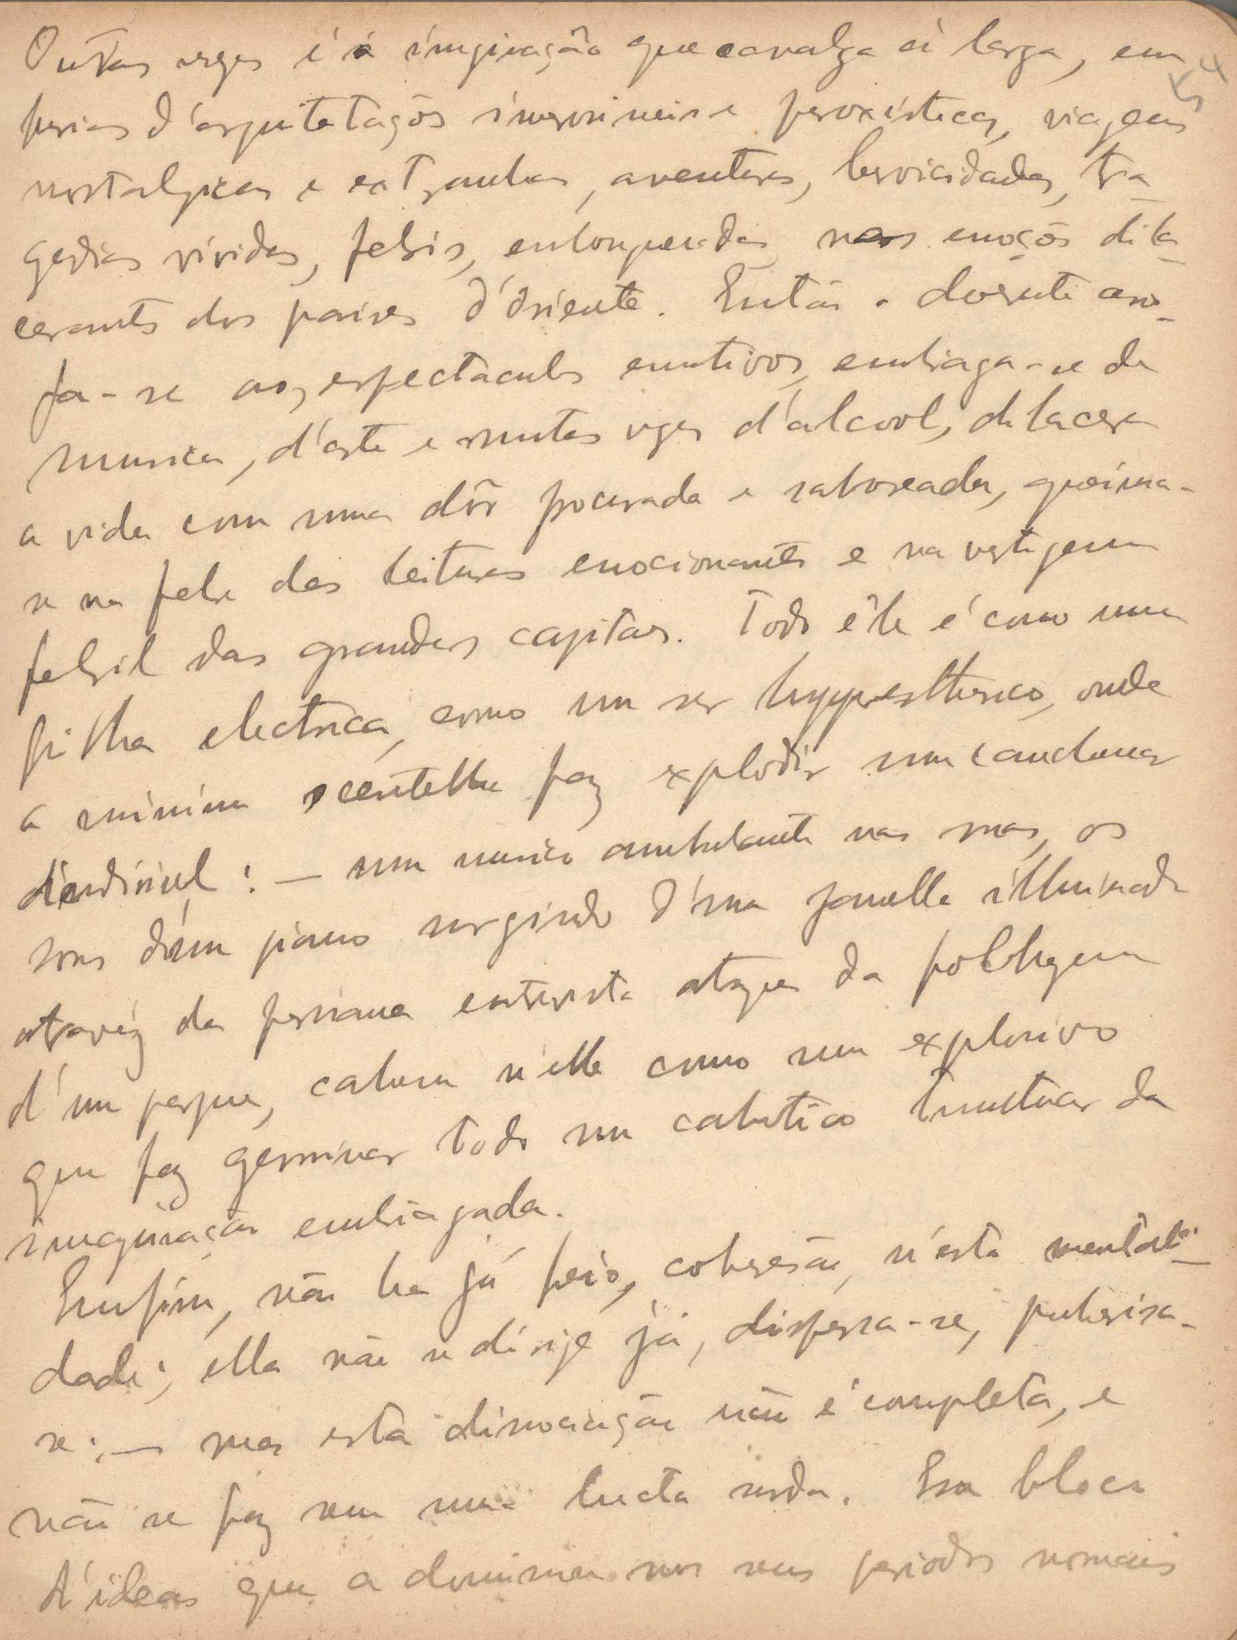 Outras vezes é a imaginação que cavalga á larga, em
ferias d'arquitetações inverosimeis e paroxisticas, viagens
nostalgicas e extranhas, aventuras, heroicidades, tra
gedias vividas, febris, enlouquecidas nas emoções dila
cerantes dos paizes d'Oriente. Então o doente arro
fa-se aos espectaculos emotivos, embriaga-se de
musica, d'arte e muitas vezes d'alcool, dilacera
a vida com uma dôr procurada e saboreada, queima-
se na febre das leituras emocionantes e na vertigem
febril das grandes capitaes. Todo êle é como uma
pilha electrica, como um ser hyperesthesico, onde
a minima scentelha faz explodir um candear
: — um musico ambulante nas ruas, os
sons d'um piano surgindo d'uma janella illuminada
atravéz da persiana entrevista atraz da folhagem
d'um parque, cahem n'elle como um explosivo
que faz germinar todo um cahotico tumultuar da
imaginação embriagada.
Emfim, não ha já freio, cohesão, n'esta mentali-
dade; ella não se dirije já, dispersa-se, pulverisa-
se: — mas esta dissociação não é completa, e
não se faz sem uma lucta surda. Esse bloco
d'ideas que a dominam nos seus periodos normaes